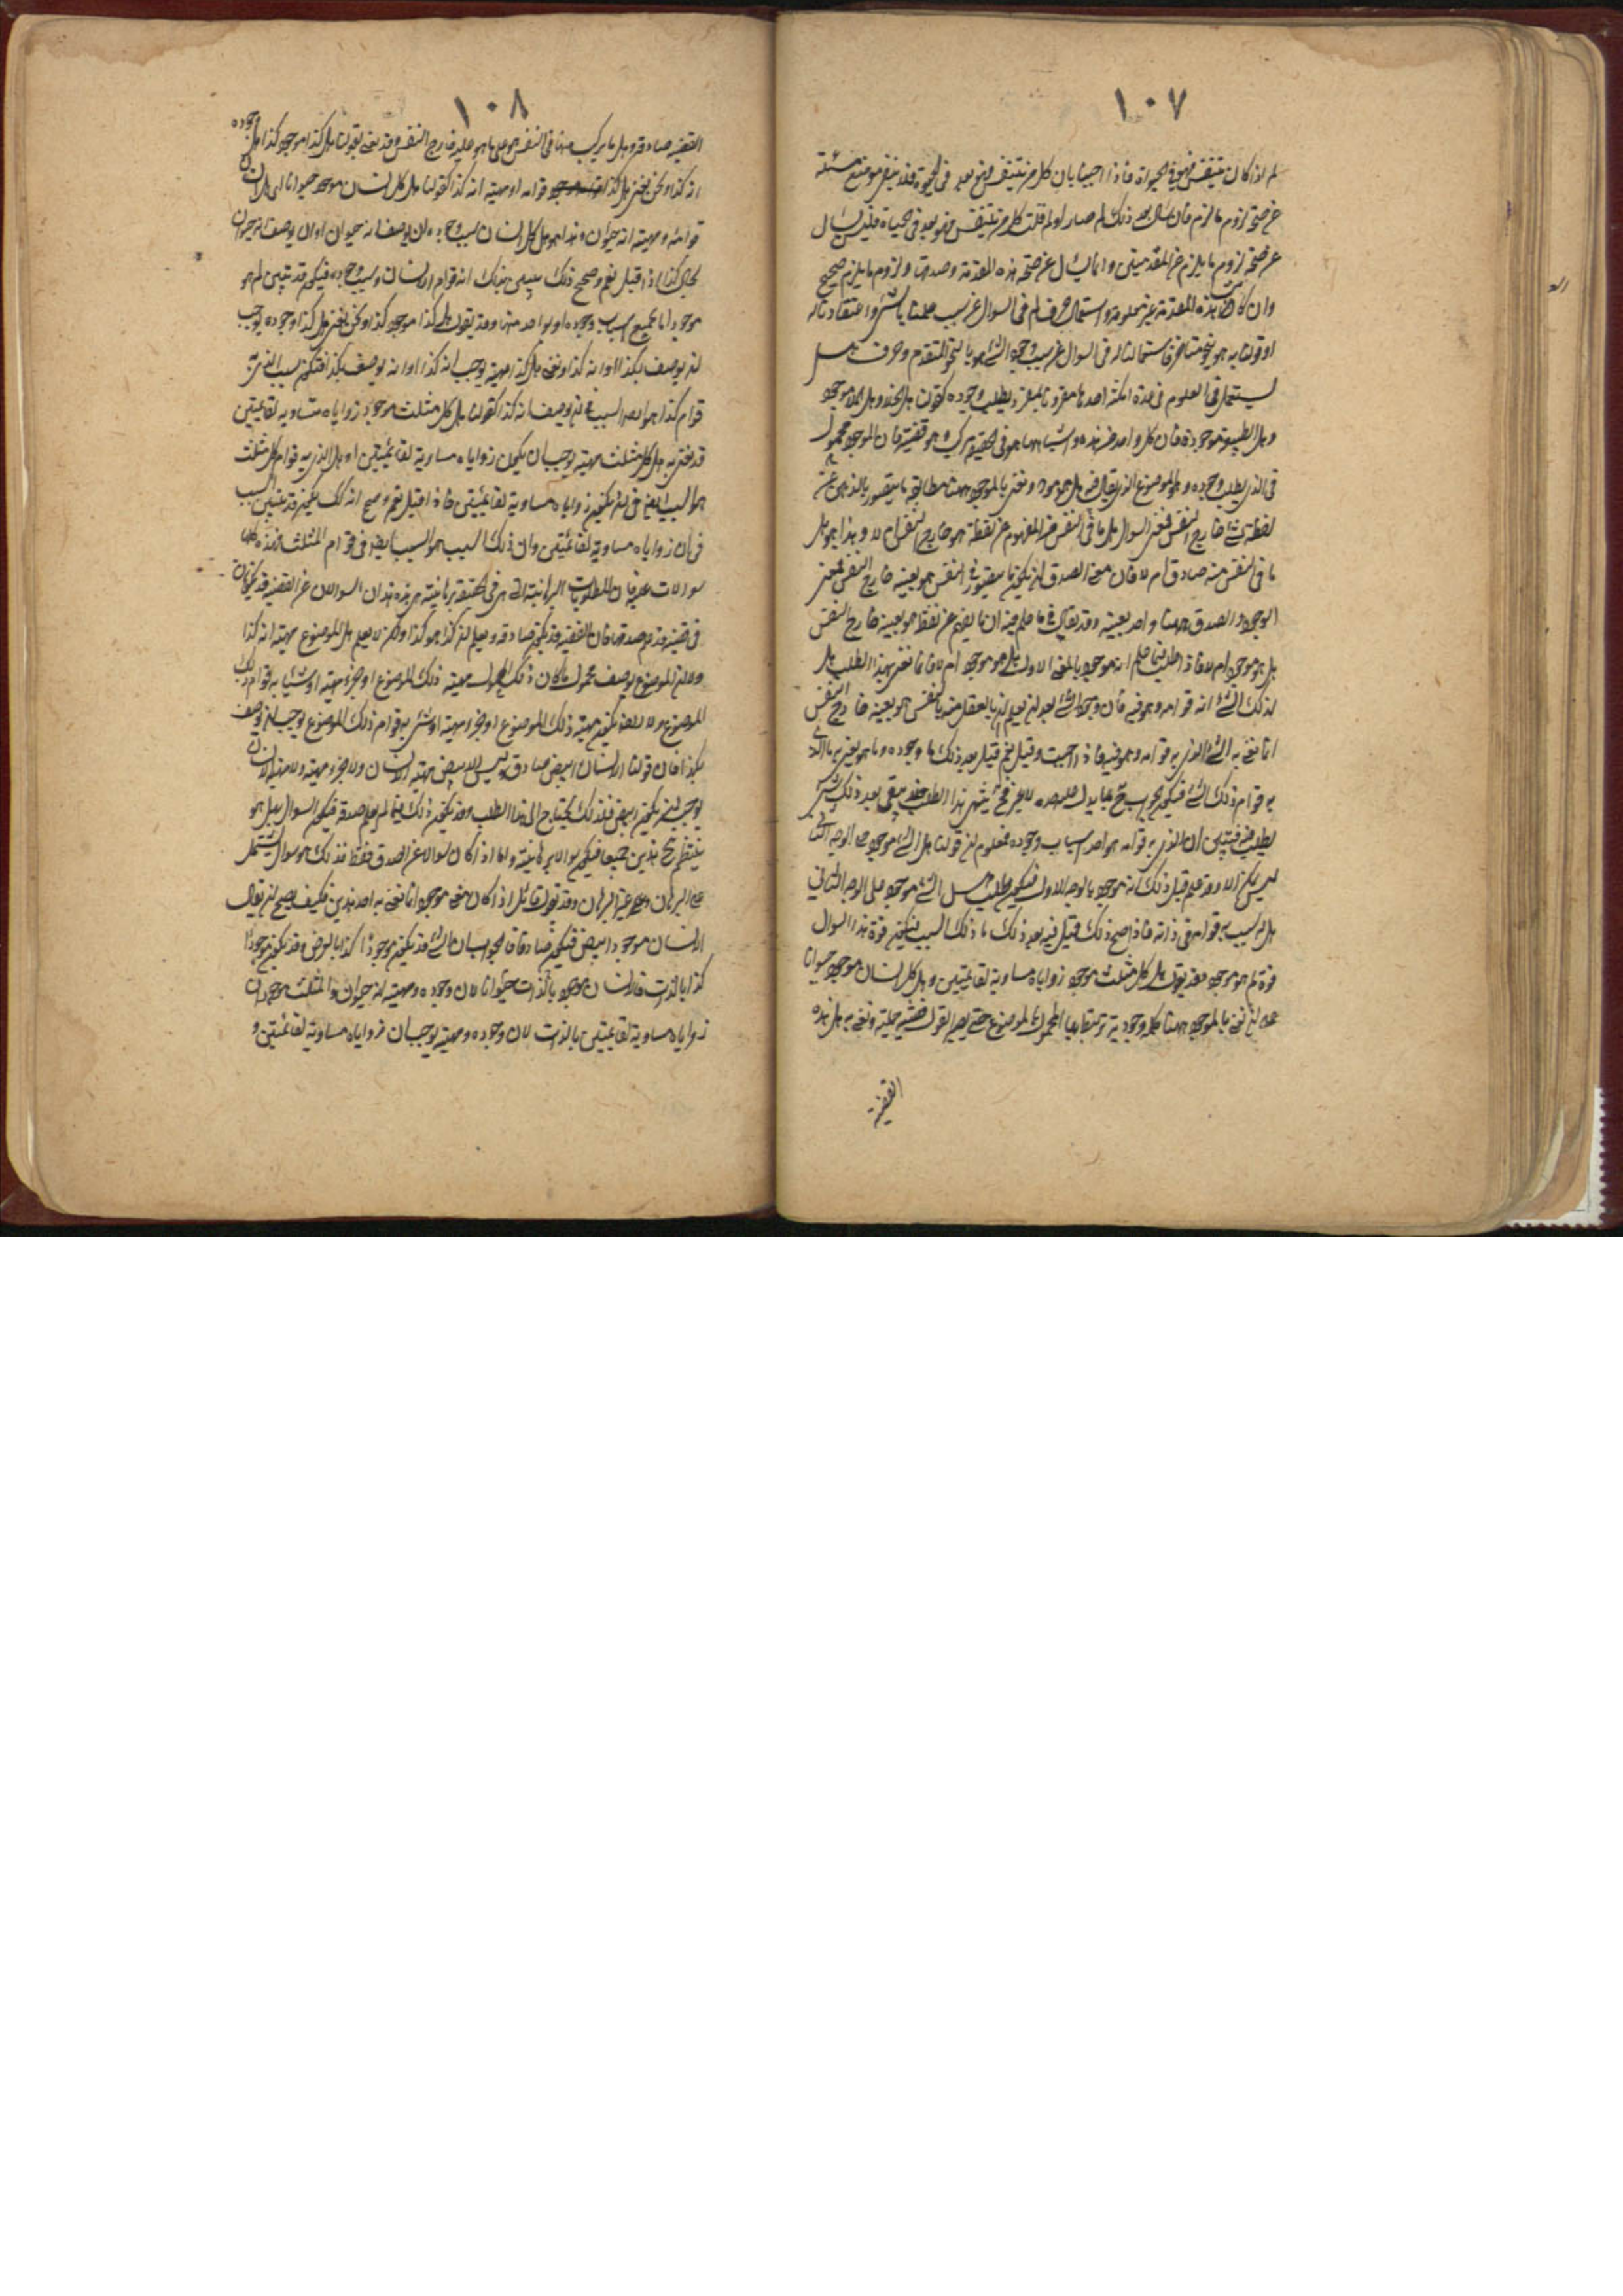 ١٠٧
لم اذا كان يتنفس فهو في الحيوة فاذا اجبنا بان كل من يتنفس فهو بعد في الحيوة فقد ينفى موضع مسئلة
عن صحة لزوم ما لزم فان سأل بعد ذلك لم صار او لم قلت كل من يتنفس فهو بعد في الحياة فليس يسأل
عن صحة لزوم ما يلزم عن المقدمتين وانما يسأل عن صحة هذه المقدمة وصدقها ولزوم ما يلزم صحيح
وان كانت هذه المقدمة غير معلومة واستعمال حرف لم في السوال عن سبب علمنا بالشئ واعتقادنا له
او قولنا به هو بنحو متأخر فاستعمالنا له في السوال عن سبب وجود الشئ هو بالنحو المتقدم وحرف هل
يستعمل في العلوم في عدة امكنة احدها مقرونا بمفرد يطلب وجوده كقولنا هل الخلاء موجود
وهل الطبيعة موجودة فان كل واحد من هذه واشباهها هو في الحقيقة مركب هو قضية فان الموجود محمول
في الذي يطلب وجوده وهو الموضوع الذي يقال فيه هل هو موجود ونعني بالموجود ههنا مطابقة ما يتصور بالذهن عن
لفظة لشئ خارج النفس فمعنى السوال هل ما في النفس من المفهوم عن لفظه هو خارج النفس ام لا وهذا هو هل
ما في النفس منه صادق ام لا فان معنى الصدق ان يكون ما يتصور في النفس هو بعينه خارج النفس فمعنى
الوجود والصدق ههنا واحد بعينه وقد يقال في ما علم فيه ان ما يفهم عن لفظه هو بعينه خارج النفس
هل هو موجود ام لا فاذا طلب فيما علم انه موجود بالمعنى الاول هل هو موجود ام لا فانما نعني بهذا الطلب هل
لذلك الشئ انه قوامه وهو فيه فان وجود الشئ بعد ان يعلم ان ما يعقل منه بالنفس هو بعينه خارج النفس
انما نعني به الشئ الذي به قوامه وهو فيه فاذا اجيب وقيل نعم قيل بعد ذلك ما وجوده وما هو يعنى به ما الذي
به قوام ذلك الشئ فيكون الجواب حينئذ بما يدل عليه حده لا غير فحينئذ ينتهي هذا الطلب فلا يبقى بعد ذلك شئ
يطلب فيه فيتبين ان الذي به قوامه هو احد اسباب وجوده فمعلوم ان قولنا هل الشئ موجود على الوجه الثاني
ليس يكون الا وقد علم قبل ذلك انه موجود بالوجه الاول فيكون طلب هل الشئ موجود على الوجه الثاني
هل له سبب به قوامه في ذاته فاذا صح ذلك قيل فيه بعد ذلك ما ذلك السبب فيكون قوة هذا السوال
قوة لم هو موجود فقد يقول هل كل مثلث موجود زواياه مساوية لقائمتين وهل كل انسان موجود حيوانا
على ان نعني بالموجود ههنا كلمة وجودية ترتبط بها المحمول بالموضوع حتى يصير القول قضية حملية ونعني به هل هذه
القضية
١٠٨
القضية صادقة وهل ما يركب منها في النفس هو على ما هو عليه خارج النفس وقد نعني بقولنا هل كذا موجود كذا هل وجوده
انه كذا ونحن نعني هل كذا قوامه او مهيته انه كذا كقولنا هل كل انسان موجود حيوانا اي هل الانسان
قوامه ومهيته انه حيوان وهذا هو هل كل انسان سبب وجوده ان يوصف انه حيوان او ان يوصف انه حيوان
بحال كذا فاذا قيل نعم وصح ذلك يبين بذلك انه قوام الانسان وسبب وجوده فيكون قد تبين لم هو
موجود اما بجميع اسباب وجوده او بواحد منها وقد يقول هل كذا موجود كذا ونحن نعني هل كذا وجوده يوجب
ان يوصف بكذا او انه كذا ونعني هل كذا مهيته توجب انه كذا او انه يوصف بكذا فتكون سبب الذي به
قوام كذا هو ايضا السبب في ان يوصف انه كذا كقولنا هل كل مثلث موجود زواياه متساوية لقائمتين
قد نعني به هل كل مثلث مهيته توجب ان يكون زواياه مساوية لقائمتين او هل الذي به قوام كل مثلث
هو السبب ايضا في ان يكون زواياه مساوية لقائمتين فاذا قيل نعم وصح انه كذلك يكون قد تبين السبب
في ان زواياه مساوية لقائمتين وان ذلك السبب هو السبب ايضا في قوام المثلث فهذه كلها
سوالات علمية فان المطلوبات البرهانية التي هي في الحقيقة برهانية هي هذه فهذان السوالان عن القضية قد يكونان
في قضية قد علم صدقها فان القضية قد يكون صادقة ويعلم ان كذا هو كذا ولكن لا يعلم هل الموضوع مهيته انه كذا
وعلى ان الموضوع يوصف بمحمول ما كان ذلك المحمول مهيته ذلك الموضوع او جزء مهيته او شيئا به قوام ذلك
الموضوع ولا ايضا يكون مهية ذلك الموضوع او جزء مهيته او شئ به قوام ذلك الموضوع يوجب ان يوصف
بكذا فان قولنا الانسان ابيض صادق وليس الابيض مهية الانسان ولا جزء مهيته ولا مهية الانسان
توجب ان يكون ابيض فلذلك يحتاج الى هذا الطلب وقد يكون ذلك فيما لم يعلم صدقه فيكون السوال بهل هو
ينتظم هذين جميعا فيكون سوالا برهانية واما اذا كان سوالا عن الصدق فقط فذلك هو سوال يشتمل
على البرهان وعلى غير البرهان وقد يقول قائل اذا كان معنى موجود انما نعني به احد هذين فكيف يصح ان يقال
الانسان موجود ابيض فيكون صادقا فالجواب ان الشئ قد يكون موجودا كذا بالعرض وقد يكون موجودا
كذا بالذات فالانسان موجود بالذات حيوانا لان وجوده ومهيته انه حيوان والمثلث موجود ان
زواياه مساوية لقائمتين بالذات لان وجوده ومهيته يوجب ان زواياه مساوية لقائمتين و